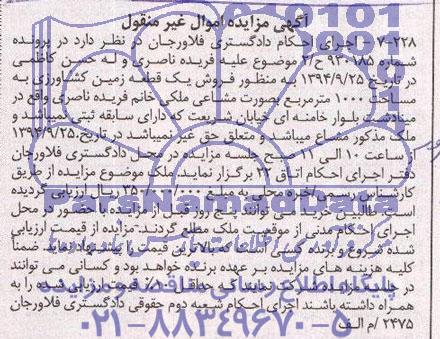 آگهی مزایده اموال غیر منقول
۷-۲۲۸- اجرای احکام دادگستری فلاورجان در نظر دارد در پرونده
شماره ۹۳۰۱۸۵ ح/۲ موضوع علیه فریده ناصری و له حسن کاظمی
در تاریخ ۱۳۹۴/۹/۲۵ به منظور فروش یک قطعه زمین کشاورزی به
مساحت ۱۰۰۰ مترمربع بصورت مشاعی ملکی خانم فریده ناصری واقع در
میادشت بلوار خامنه ای خیابان شریعت که دارای سابقه ثبتی نمیباشد و
ملک مذکور مشاع میباشد و متعلق حق غیر نمیباشد در تاریخ ۱۳۹۴/۹/۲۵
از ساعت ۱۰ الی ۱۱ صبح جلسه مزایده در محل دادگستری فلاورجان
دفتر اجرای احکام اتاق ۲۳ برگزار نماید. ملک موضوع مزایده از طریق
کارشناس رسمی/خبره محلی به مبلغ ریال ارزیابی گردیده
است طالبین خرید می توانند پنج روز قبل از مزایده با حضور در محل
اجرای احکام مدنی از موقعیت ملک مطلع گردند. مزایده از قیمت ارزیابی
شده شروع و برنده کسی است که بالاترین قیمت را پیشنهاد نماید ضمنا
کلیه هزینه های مزایده بر عهده برنده خواهد بود و کسانی می توانند
در جلسه شرکت نمایند که حداقل ۱۰٪ قیمت ارزیابی شده را به
همراه داشته باشند اجرای احکام شعبه دوم حقوقی دادگستری فلاورجان
۲۴۷۵ /م الف
ParsNamadData
پایگاه اطلاع رسانی مناقصه و مزایده
۰۲۱-۸۸۳۴۹۶۷۰-۵